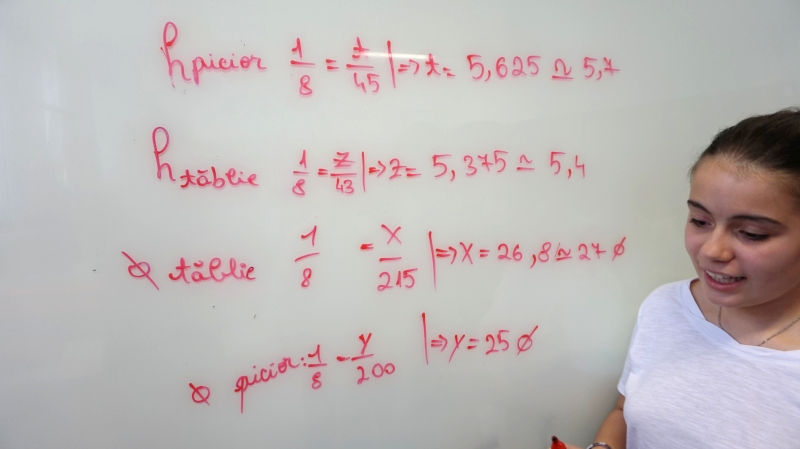 h picior 1/8 = t/45 | => t = 5,625 ≃ 5,7
h tăblie 1/8 = z/43 | => z = 5,375 ≃ 5,4
⌀ tăblie 1/8 = x/215 | => x = 26,8 ≃ 27 ⌀
⌀ picior: 1/8 = y/200 | => y = 25 ⌀